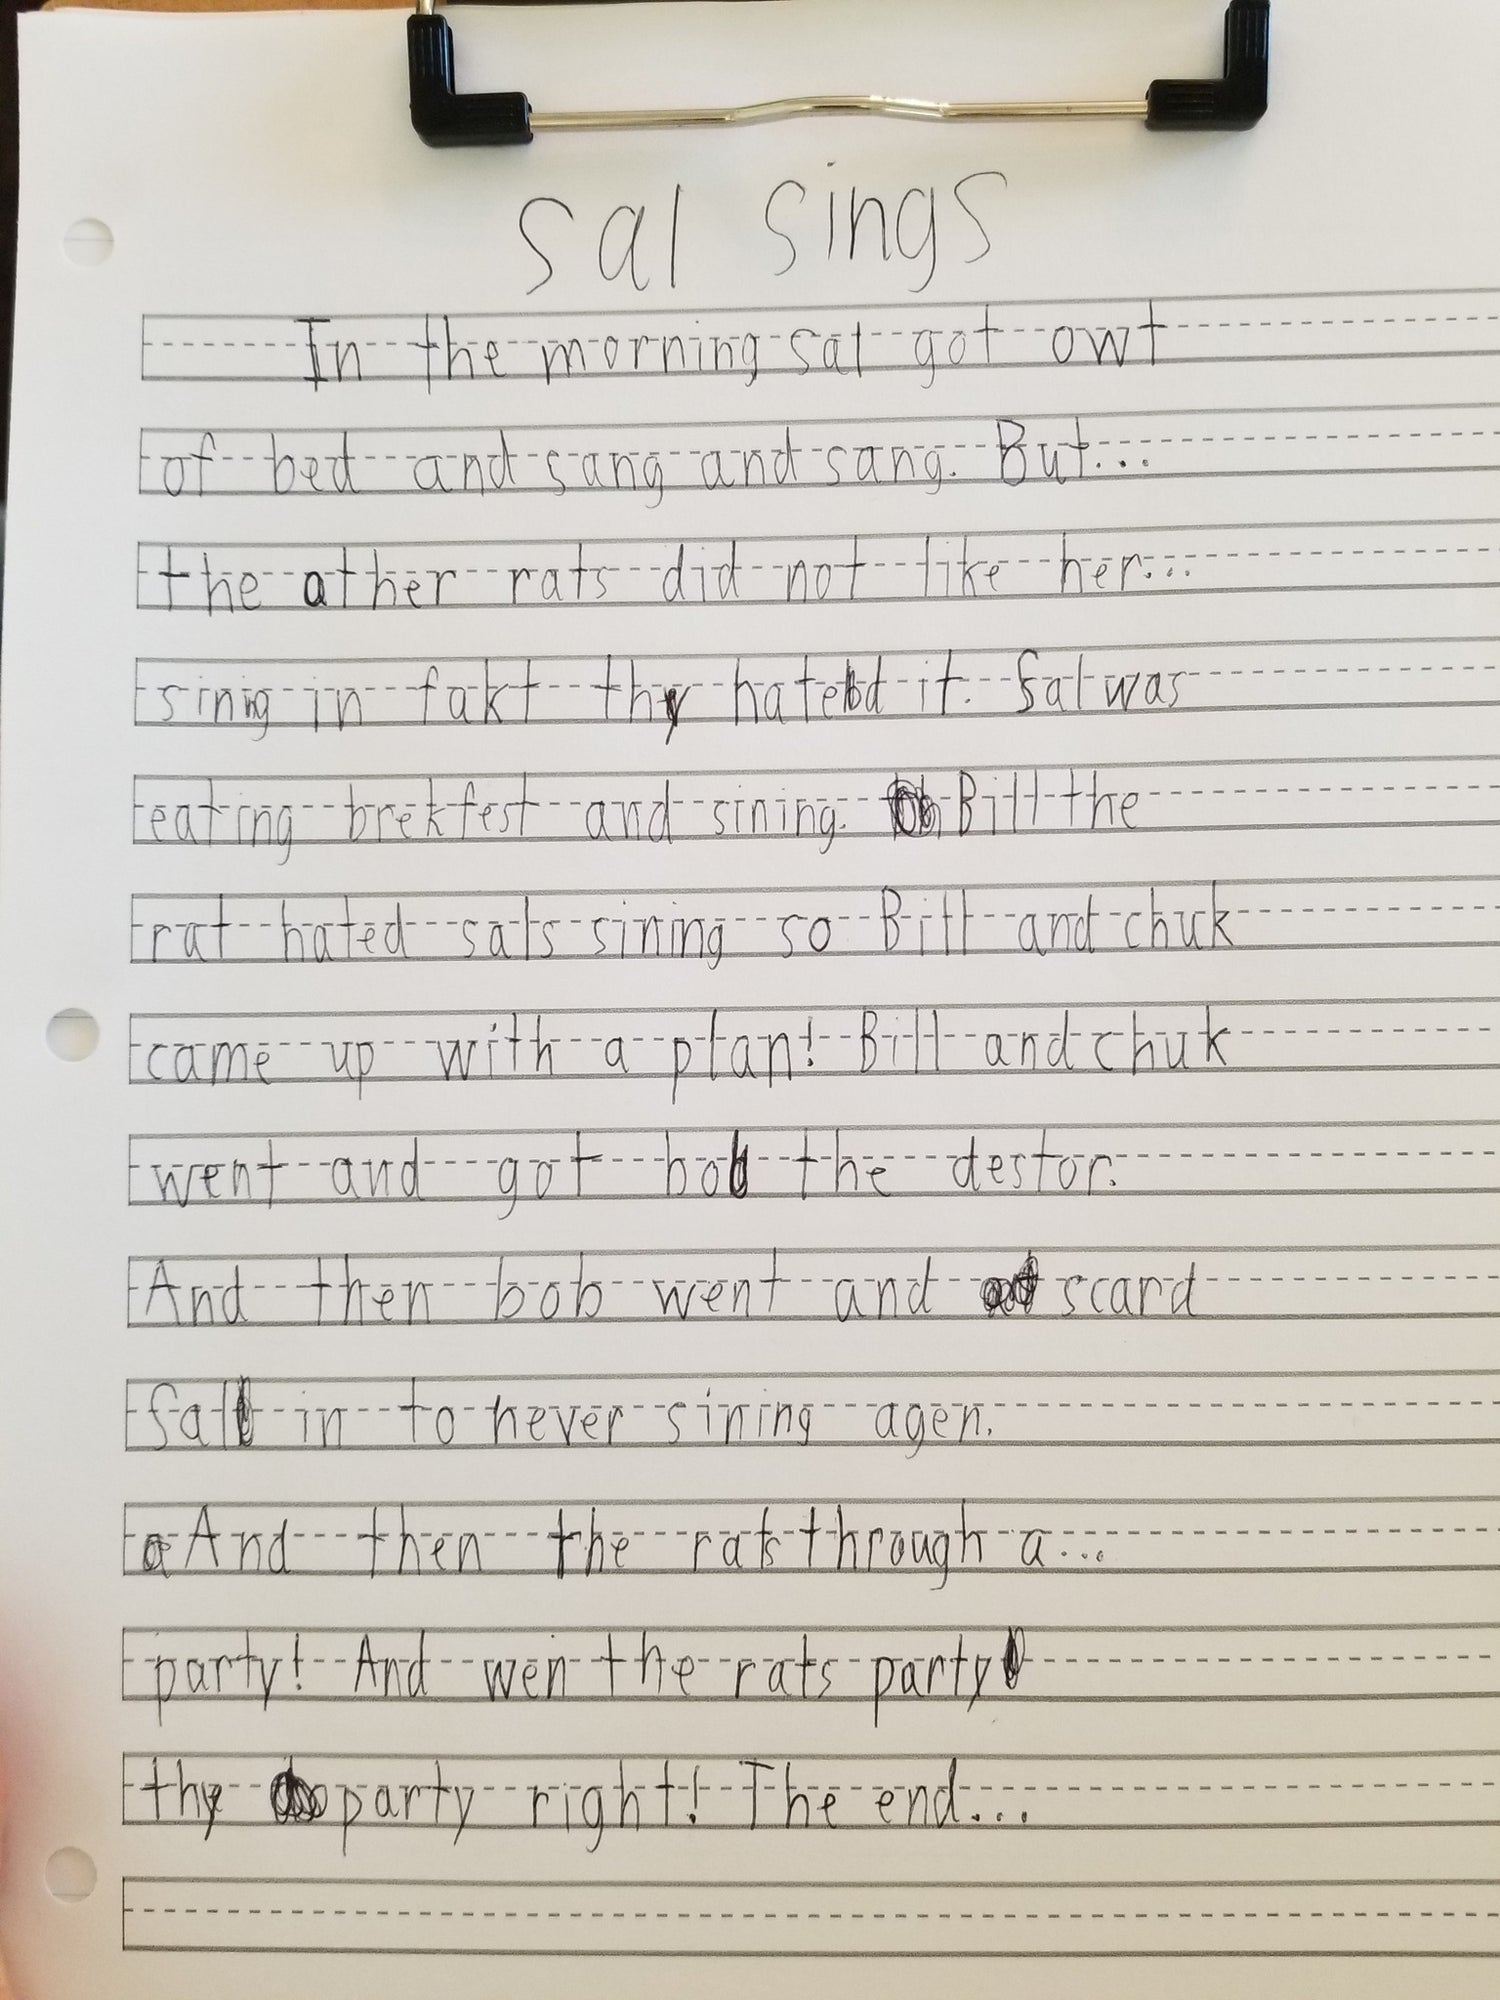 Sal Sings
In the morning sal got owt
of bed and sang and sang. But...
the ather rats did not like her...
sining in fakt thy hated it. Sal was
eating brekfest and sining. Bill the
rat hated sals sining so Bill and chuk
came up with a plan! Bill and chuk
went and got bob the destor.
And then bob went and scard
Sal in to never sining agen.
And then the rats through a...
party! And wen the rats party
thy party right! The end...